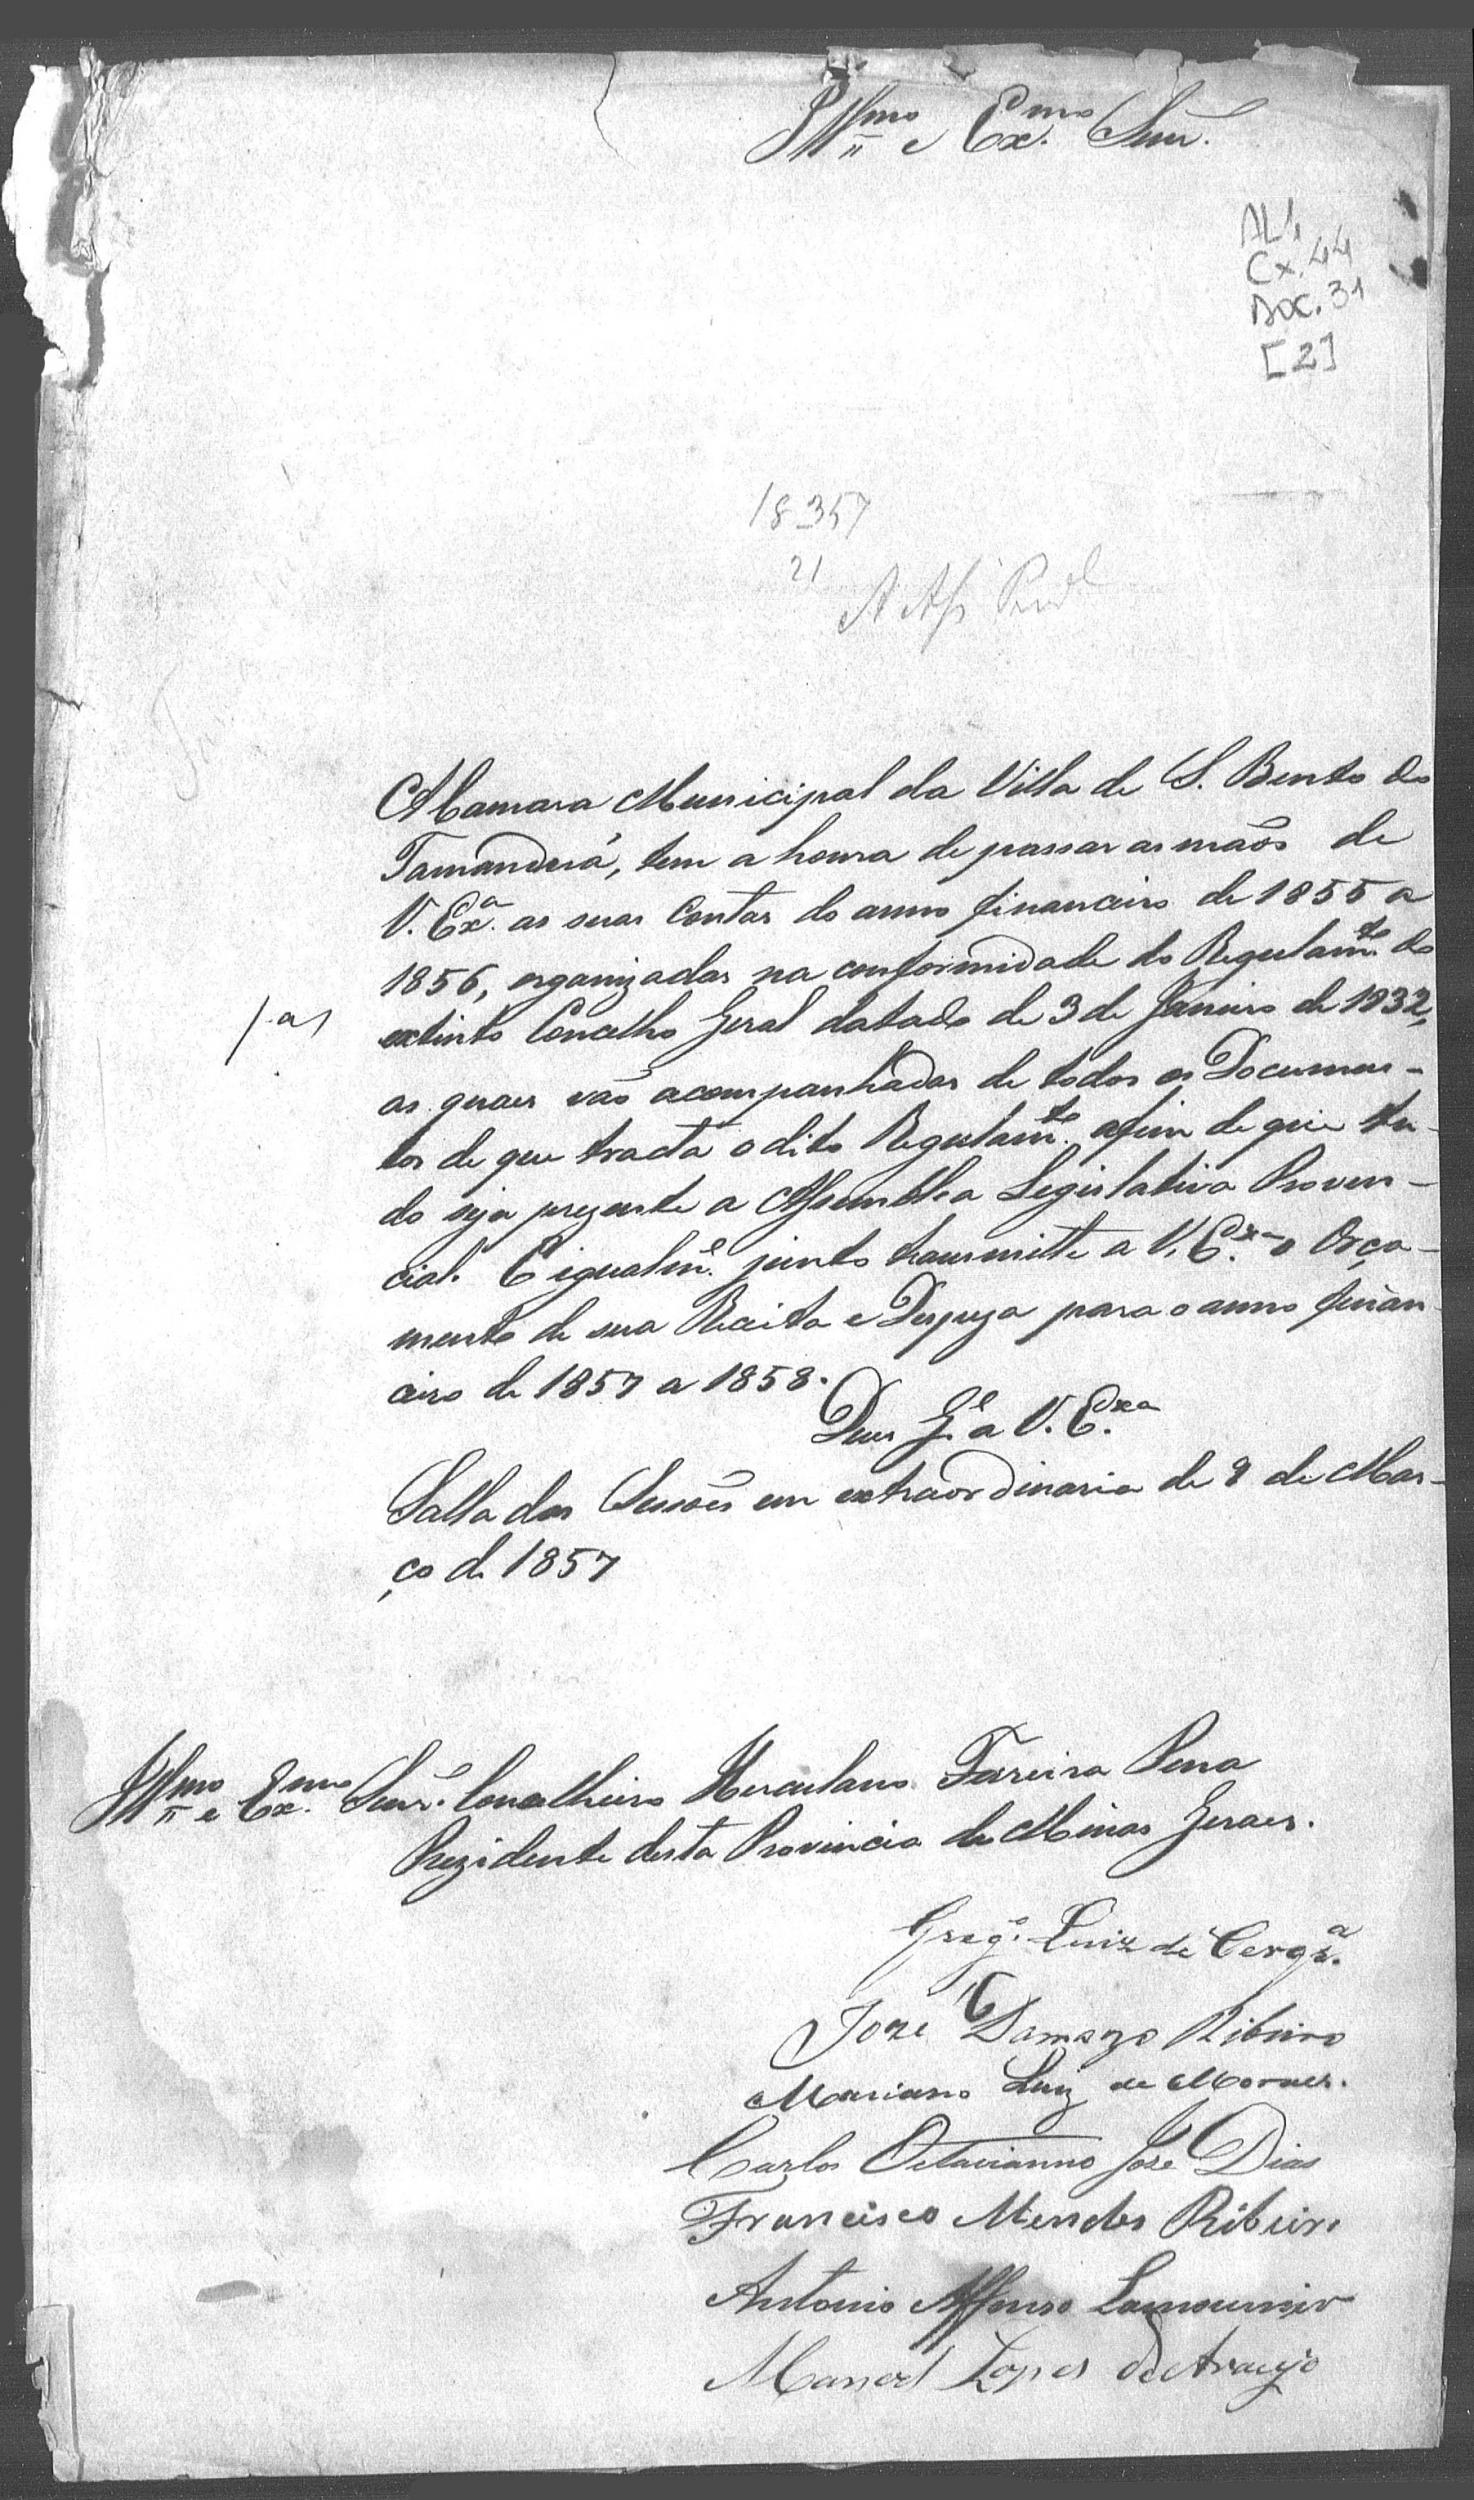 Illmo e Exmo Snr.
AL1,
Cx. 44
Doc. 31
[2]
18357
21
A Camara Municipal da Villa de S. Bento do
Tamanduá, tem a honra de passar as mãos de
V. Exa. as suas Contas do anno financeiro de 1855 a
1856, organizadas na conformidade do Regulamto. do
extinto Concelho Geral datado de 3 de Janeiro de 1832,
as quaes vão acompanhadas de todos os Documen-
tos de que tracta o dito Regulamto. afim de que tu-
do seja prezente a Assemblea Legislativa Proven-
cial. E igualme. junto transmitte a V. Exa. o Orça-
mento de sua Receita e Despeza para o anno finan-
ceiro de 1857 a 1858.
Deus Ge. a V. Exa.
Salla das Sessões em extraordinaria de 9 de Mar-
ço de 1857
Illmo e Exmo. Snr. Concelheiro Herculano Ferreira Pena
Prezidente desta Provincia de Minas Geraes.
Grego. Luiz de Cerqra.
Joze Damazo Ribeiro
Mariano Luiz de Moraes.
Carlos Octavianno Joze Dias
Francisco Mendes Ribeiro
Antonio Affonso Lamounier
Manoel Lopes de Araujo